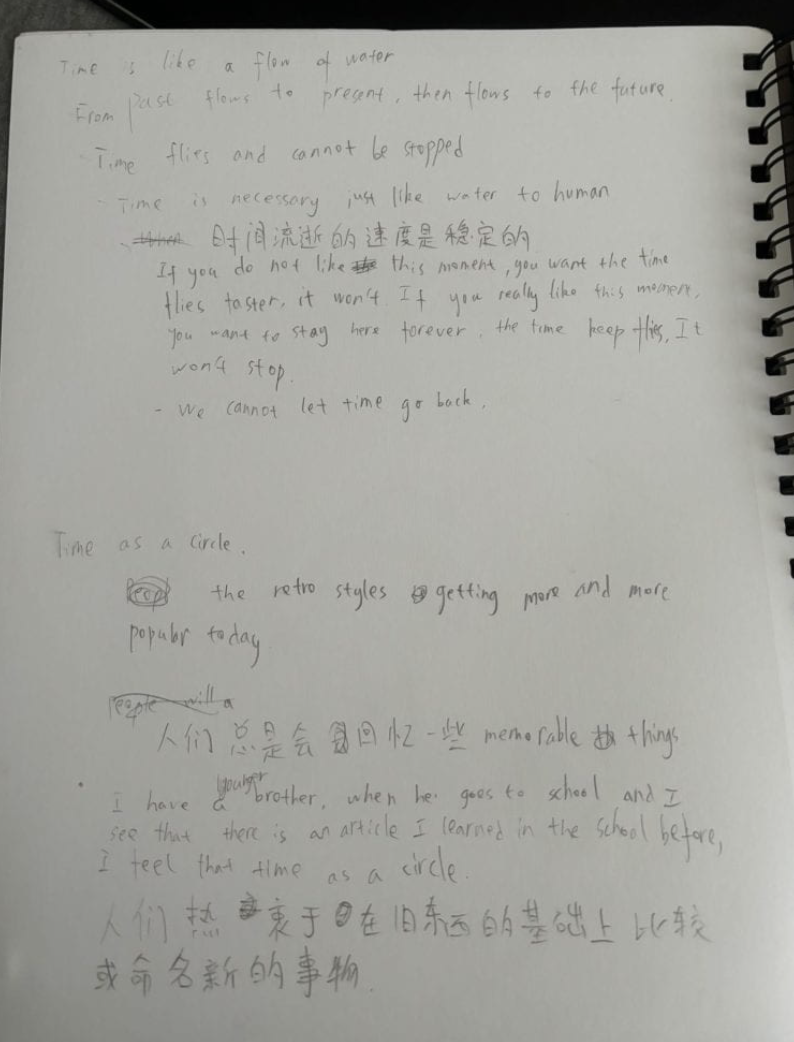 Time is like a flow of water
From past flows to present, then flows to the future.
- Time flies and cannot be stopped
- Time is necessary just like water to human
- 时间流逝的速度是稳定的
If you do not like this moment, you want the time
flies faster, it won't. If you really like this moment,
you want to stay here forever, the time keep flies, It
won't stop.
- We cannot let time go back.
Time as a circle.
the retro styles getting more and more
popular today
人们总是会回忆一些 memorable things
I have a younger brother, when he goes to school and I
see that there is an article I learned in the school before,
I feel that time as a circle.
人们热衷于在旧东西的基础上比较
或命名新的事物.